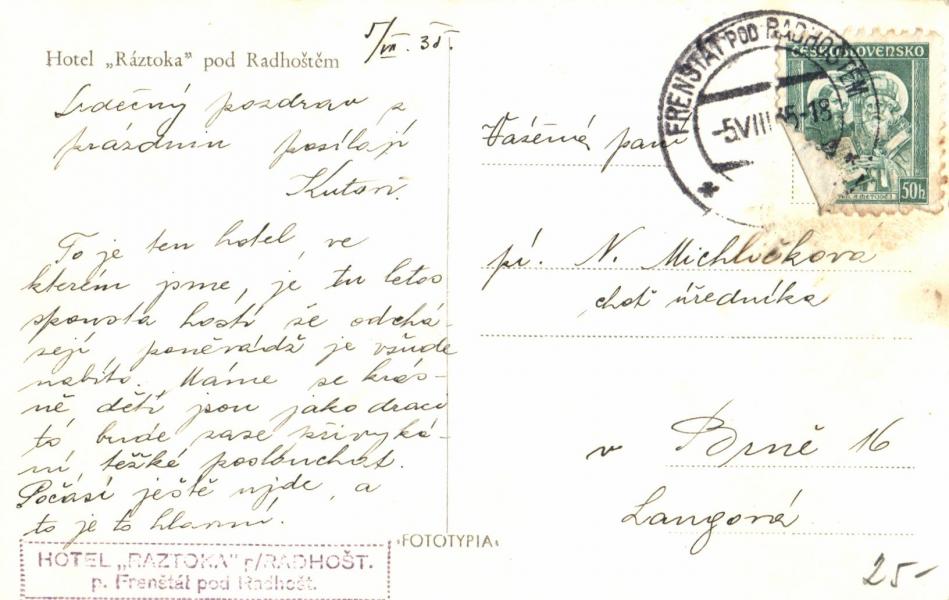 5/VIII. 35.
Hotel „Ráztoka" pod Radhoštěm
Srdečný pozdrav z
prázdnin posílají
Kutovi.
To je ten hotel, ve
kterém jsme, je tu letos
spousta hostí že odchá-
zejí, poněvádž je všude
nabito. Máme se krás-
ně děti jsou jako draci
to bude zase křivyká-
ní, těžké poslouchat.
Počasí ještě ujde, a
to je to hlavní.
HOTEL „RAZTOKA" p/RADHOŠT.
p. Frenštát pod Radhošt.
FOTOTYPIA
FRENŠTÁT POD RADHOŠTĚM
-5.VIII.35-18
ČESKOSLOVENSKO
50h
Vážená paní
pí. N. Michličková
choť úředníka
v Brně 16
Langová
25-